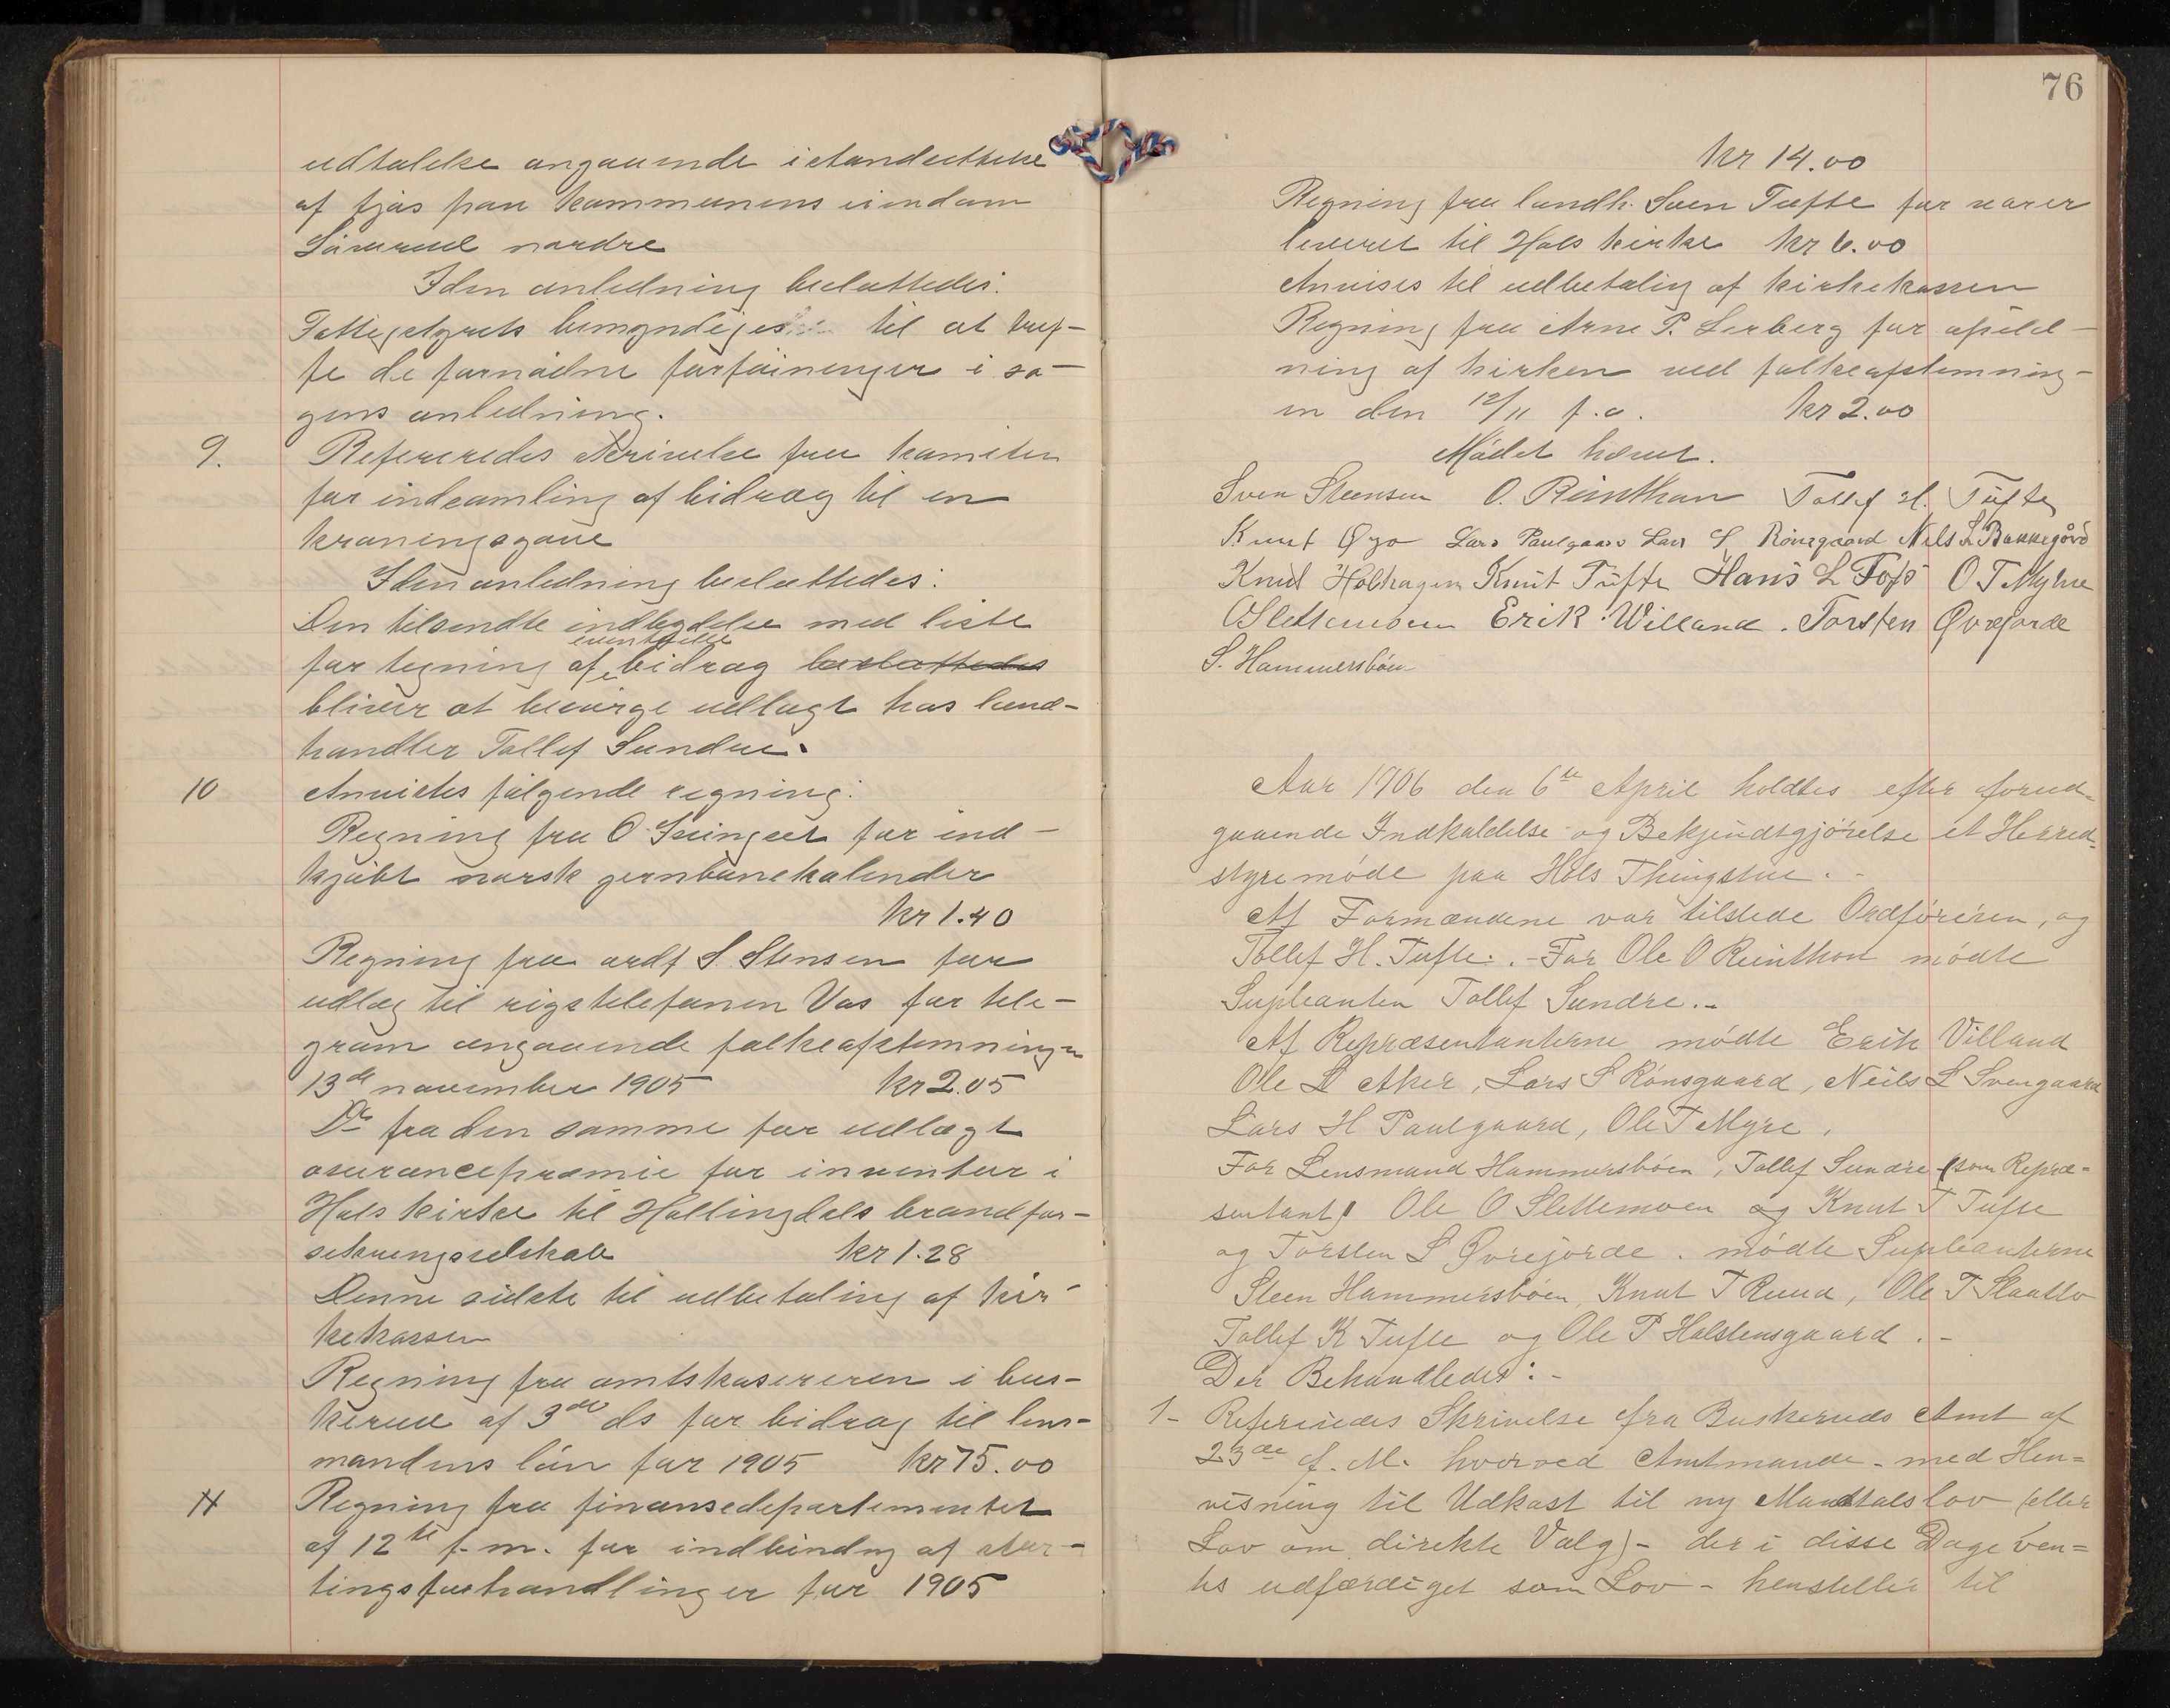 udtalelse angaaende istandsættelse
af fjøs paa kommunens eiendom
nordre
I den anledning besluttedes:
Fattigstyret bemyndiges til at træf-
fe de fornødne forføininger i sa-
gens anledning.
9. Refereredes skrivelse fra komiteen
for indsamling af bidrag til en
kroningsgave
I den anledning besluttedes:
Den tilsendte indbydelse med liste
eventuelle
for tegning af bidrag besluttedes
bliver at besørge udlagt hos land-
handler Tollef Sundre.
10 Anvistes følgende regning:
Regning fra O for ind-
kjøbt norsk jernbanekalender
kr 1.40
Regning fra ordf S. Stensen for
udlæg til rigstelefonen Vos for tele-
gram angaaende folkeafstemningen
13de november 1905 kr 2.05
Do fra den samme for udlagt
asurancepræmie for inventar i
Hols kirke til Hallingdals brandfor-
sekringsselskab kr 1.28
Denne sidste til udbetaling af kir-
kekassen
Regning fra amtskasereren i bus-
kerud af 3de ds for bidrag til lens-
mandens løn for 1905 kr 75.00
11 Regning fra finansedepartementet
af 12te f.m. for indbinding af stor-
tingsforhandlinger for 1905
76
kr 14.00
Regning fra landh. Sven Tufte for varer
leveret til Hols kirke kr 6.00
Anvises til udbetaling af kirkekassen
Regning fra Arne P. Lerberg for opild-
ning af kirken ved folkeafstemning-
en den 12/11 f.a. kr 2.00
Mødet hævet.
Sven Steensen O. Reinthon Tollef H. Tufte
Knut Øyo Lars Paulgaard Lars S. Rönsgaard Nils L Bakkegård
Knud Holhagen Knut Tufte Hans L Foss O T Myhre
O Slettemoen Erik Willand. Torsten Øvrejorde
S. Hammersbøen
Aar 1906 den 6te April holdtes efter forud-
gaaende Indkaldelse og Bekjendtgjørelse et Herred-
styremøde paa Hols Thingstue. -
Af Formændene var tilstede Ordføreren, og
Tollef H. Tufte. - For Ole O Reinthon mødte
Supleanten Tollef Sundre. -
Af Repræsentanterne mødte Erik Villand
Ole L Aker, Lars S Rönsgaard, Neils L Svengaard
Lars H Paulgaard, Ole T Myre,
For Lensmand Hammersbøen, Tollef Sundre (som Repræ-
sentant) Ole O Slettemoen og Knut T Tufte
og Torsten S Øvrejorde. mødte Supleanterne
Steen Hammersbøen, Knut T Ruud, Ole T Slaatto
Tollef K Tufte og Ole P Holstensgaard. -
Der Behandledes: -
1- Refereredes Skrivelse fra Buskeruds Amt af
23de f. M. hvorved Amtmande - med Hen-
visning til Udkast til ny Mandtalslov (eller
Lov om direkte Valg) - der i disse Dage ven-
tes udfærdiget som Lov - henstiller til